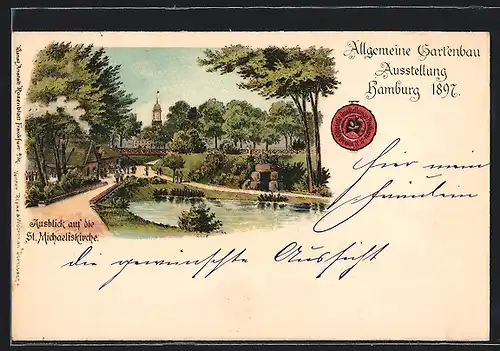 Allgemeine Gartenbau
Ausstellung
Hamburg 1897.
Ausblick auf die
St. Michaeliskirche.
Hier mein
Fräulein
die gewünschte Aussicht